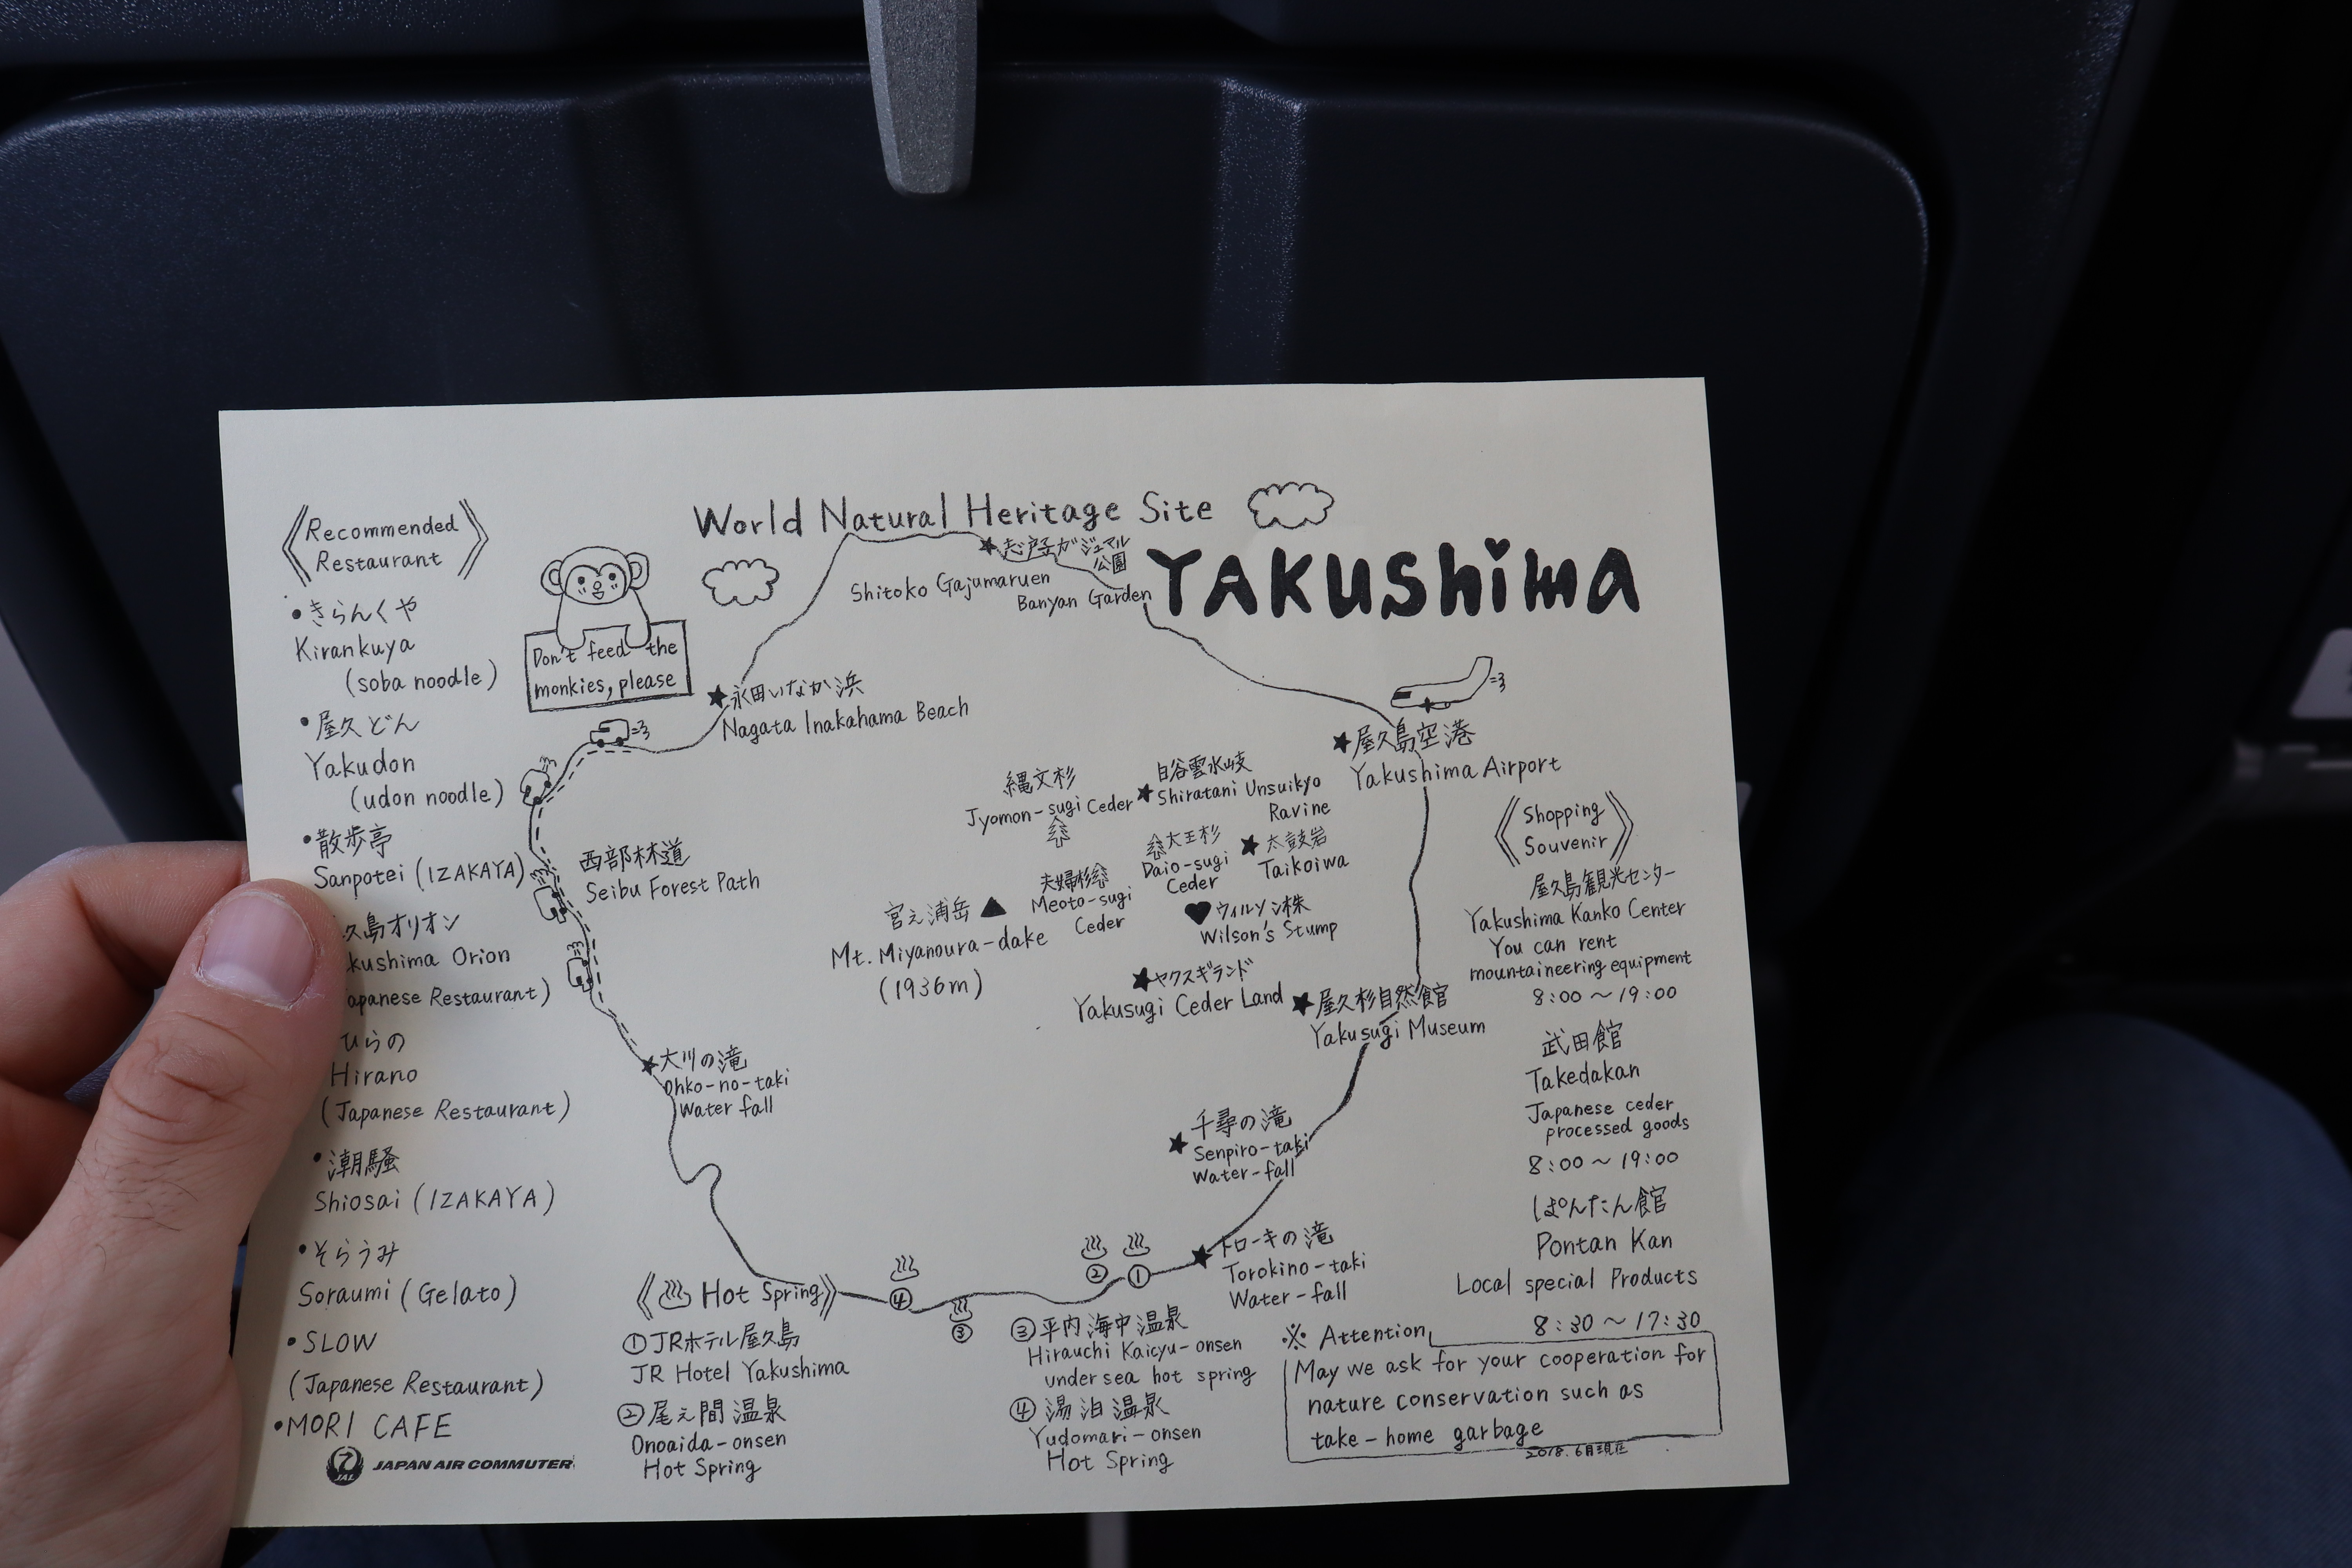 World Natural Heritage Site
YAKUShima
《Recommended
Restaurant》
・きらんくや
Kirankuya
(soba noodle)
・屋久どん
Yakudon
(udon noodle)
・散歩亭
Sanpotei (IZAKAYA)
久島オリオン
kushima Orion
apanese Restaurant)
ひらの
Hirano
(Japanese Restaurant)
・潮騒
Shiosai (IZAKAYA)
・そらうみ
Soraumi (Gelato)
・SLOW
(Japanese Restaurant)
・MORI CAFE
JAL
JAPAN AIR COMMUTER
Don't feed the
monkies, please
★志戸子ガジュマル
公園
Shitoko Gajumaruen
Banyan Garden
★永田いなか浜
Nagata Inakahama Beach
★屋久島空港
Yakushima Airport
縄文杉
Jyomon-sugi Ceder
白谷雲水峡
★Shiratani Unsuikyo
Ravine
大王杉
Daio-sugi
Ceder
★太鼓岩
Taikoiwa
西部林道
Seibu Forest Path
夫婦杉
Meoto-sugi
Ceder
宮之浦岳▲
Mt. Miyanoura-dake
(1936m)
♥ウィルソン株
Wilson's Stump
★ヤクスギランド
Yakusugi Ceder Land
★屋久杉自然館
Yakusugi Museum
★大川の滝
Ohko-no-taki
Water fall
★千尋の滝
Senpiro-taki
Water-fall
★トローキの滝
Torokino-taki
Water-fall
④
③
②
①
《♨ Hot Spring》
①JRホテル屋久島
JR Hotel Yakushima
②尾之間温泉
Onoaida-onsen
Hot Spring
③平内海中温泉
Hirauchi Kaicyu-onsen
under sea hot spring
④湯泊温泉
Yudomari-onsen
Hot Spring
《Shopping
Souvenir》
屋久島観光センター
Yakushima Kanko Center
You can rent
mountaineering equipment
8:00～19:00
武田館
Takedakan
Japanese ceder
processed goods
8:00～19:00
ぽんたん館
Pontan Kan
Local special Products
8:30～17:30
※ Attention
May we ask for your cooperation for
nature conservation such as
take-home garbage
2018.6月現在